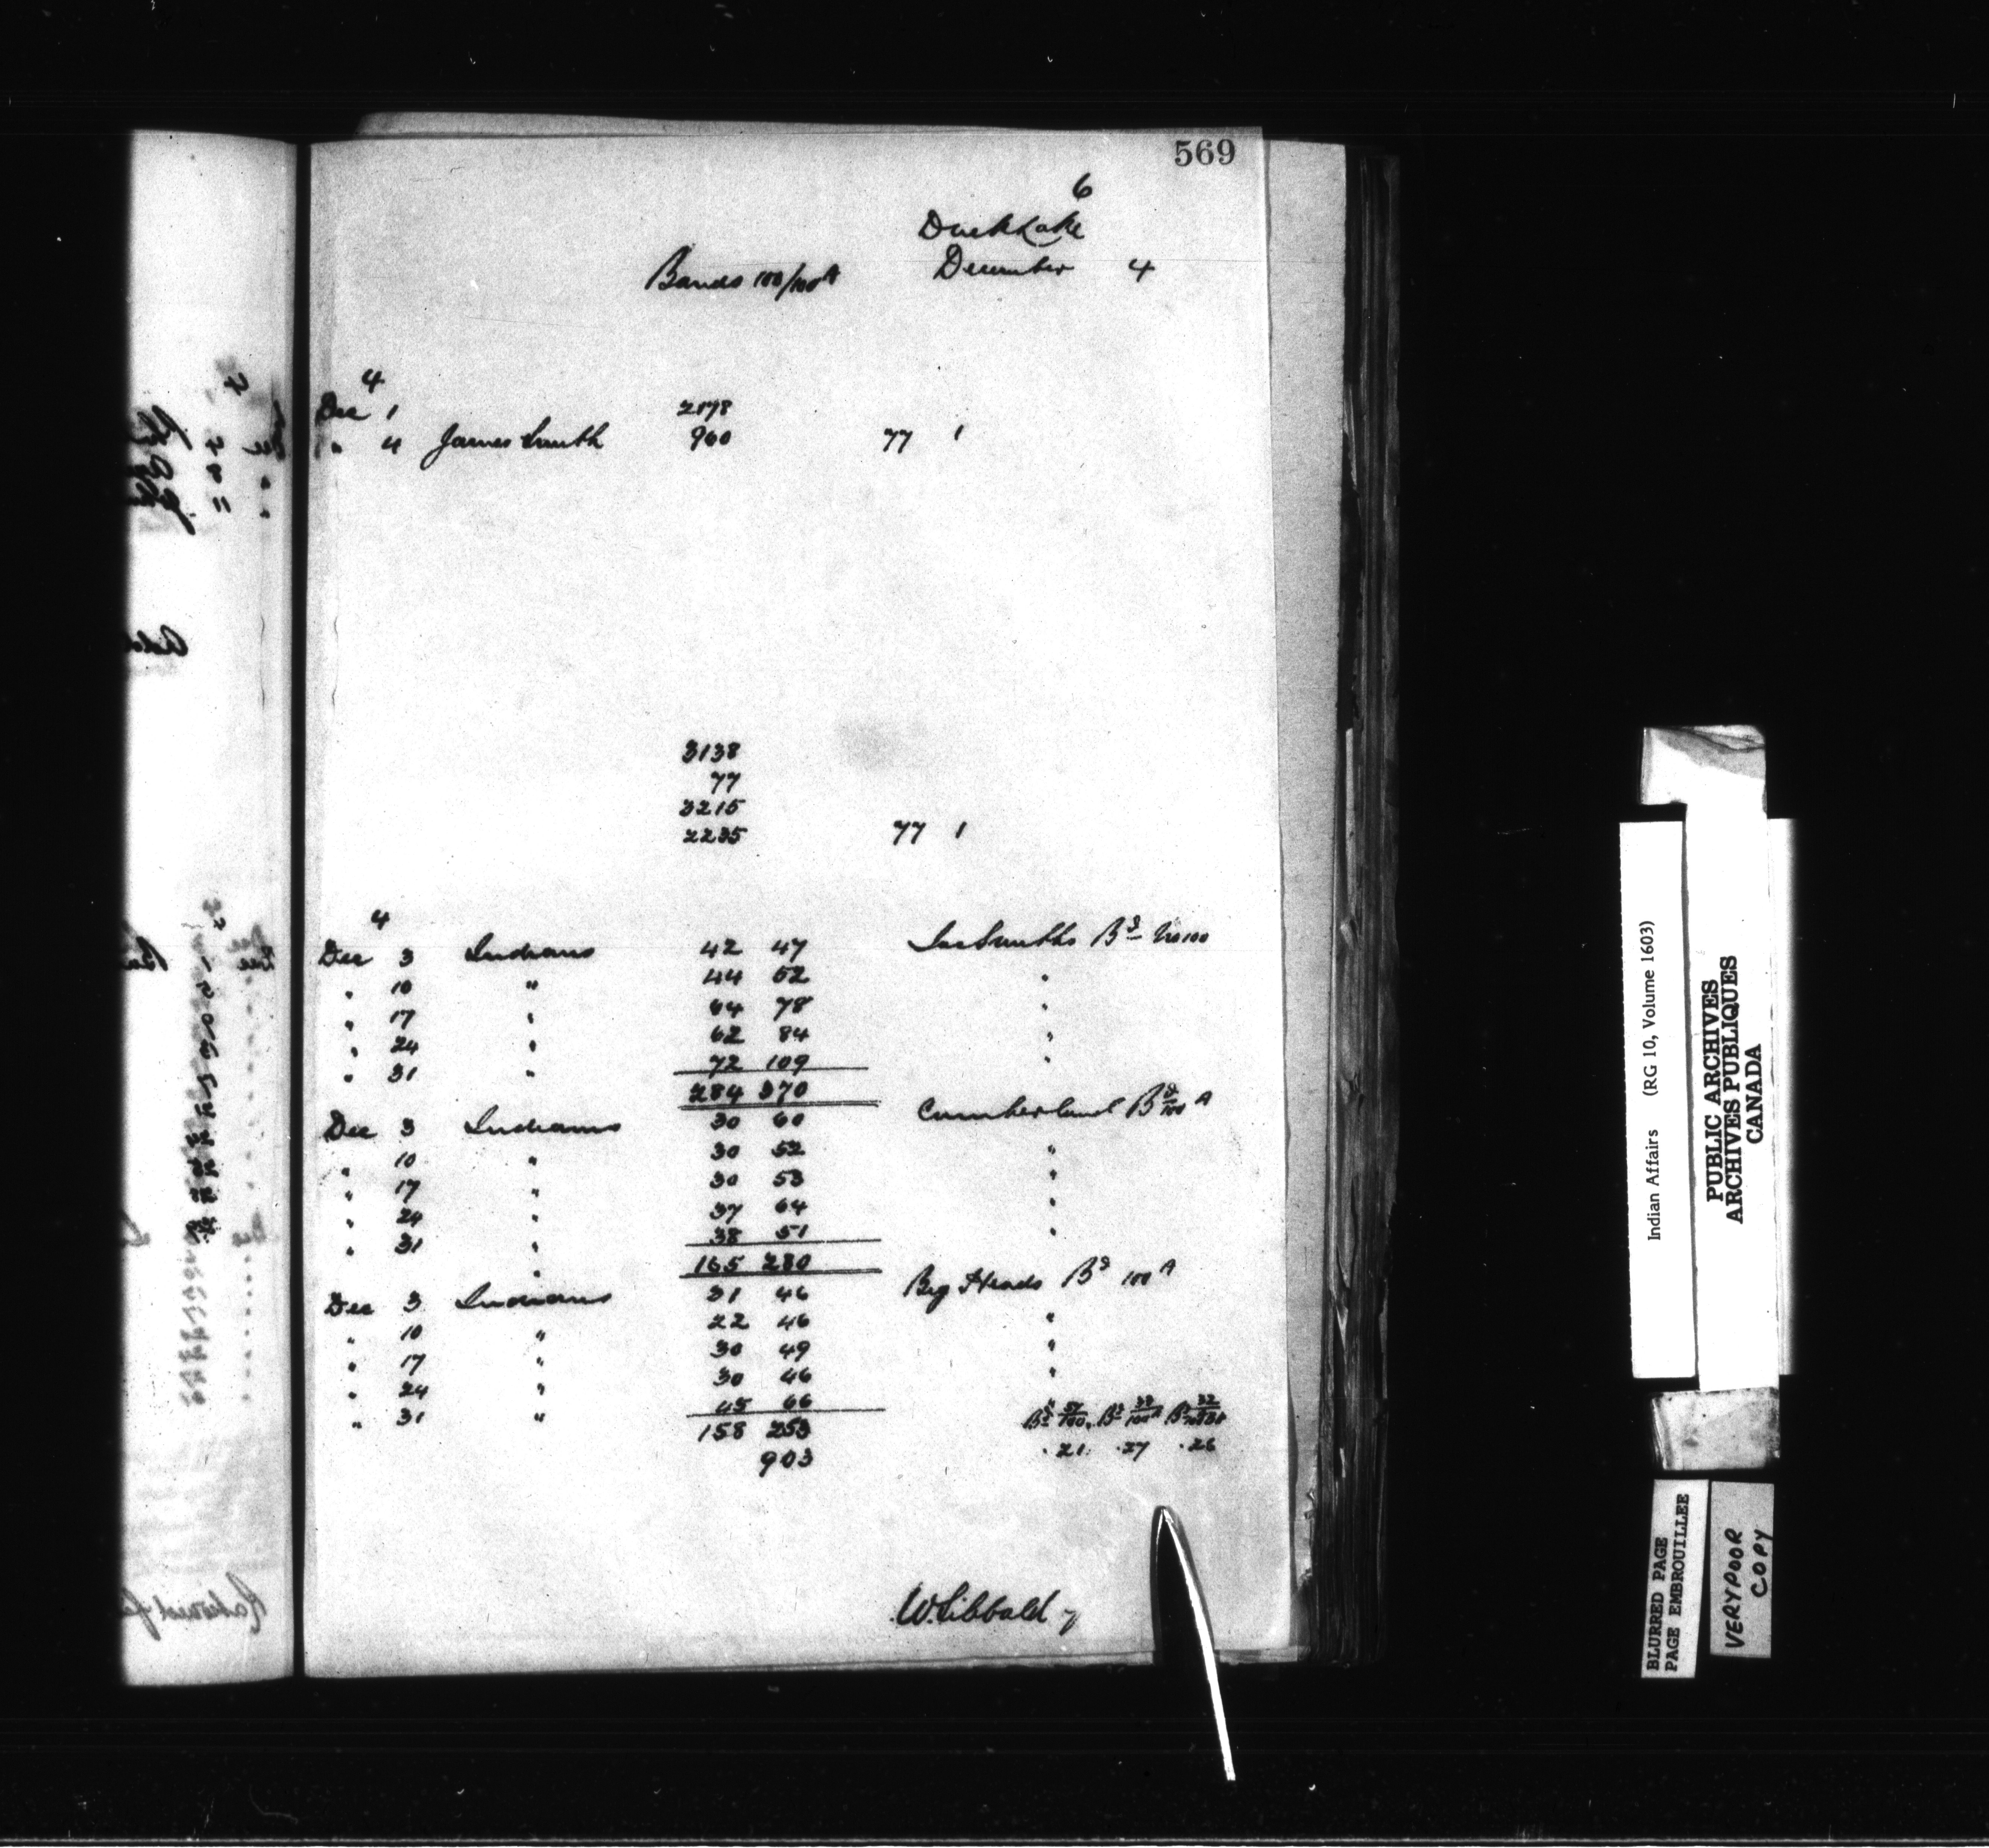 569
6
Duck Lake
Bands 100/100A December 4
4
Dec 1 2178
" 4 James Smith 960 77 1
3138
77
3215
2235 77 1
4
Dec 3 Indians 42 47 Jas Smiths Bd No 100
" 10 " 44 52 "
" 17 " 64 78 "
" 24 " 62 84 "
" 31 " 72 109 "
284 370
Dec 3 Indians 30 60 Cumberland Bd 100 A
" 10 " 30 52 "
" 17 " 30 53 "
" 24 " 37 64 "
" 31 " 38 51 "
165 280
Dec 3 Indians 31 46 Big Heads Bd 100 A
" 10 " 22 46 "
" 17 " 30 49 "
" 24 " 30 46 "
" 31 " 45 66
158 253
903
.21 .27 .26
W. Sibbald
Indian Affairs (RG 10, Volume 1603)
PUBLIC ARCHIVES
ARCHIVES PUBLIQUES
CANADA
BLURRED PAGE
PAGE EMBROUILLEE
VERY POOR
COPY